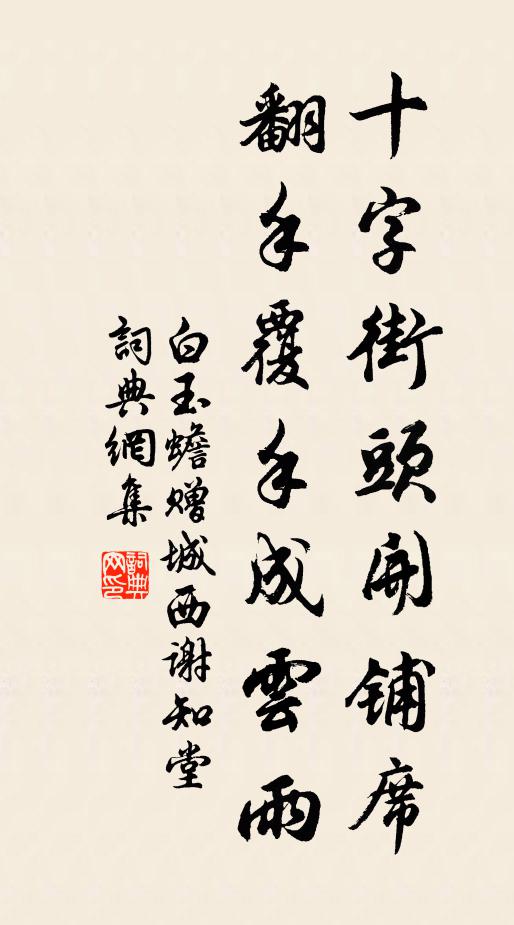 十字街頭開鋪席
翻手覆手成雲雨
白玉蟾赠城西谢知堂
詞典網集
詞典网印